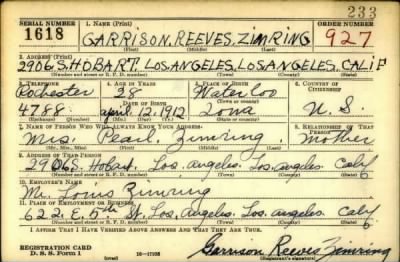 233
SERIAL NUMBER 1. NAME (Print) ORDER NUMBER
1618 GARRISON, REEVES, ZIMRING 927
(First) (Middle) (Last)
2. ADDRESS (Print)
2906 S. HOBART, LOS ANGELES, LOS ANGELES, CALIF
(Number and street or R. F. D. number) (Town) (County) (State)
3. TELEPHONE 4. AGE IN YEARS 5. PLACE OF BIRTH 6. COUNTRY OF CITIZENSHIP
Rochester 28 Waterloo
DATE OF BIRTH
4788 april, 12, 1912 Iowa U. S.
(Exchange) (Number) (Mo.) (Day) (Yr.) (State or country)
7. NAME OF PERSON WHO WILL ALWAYS KNOW YOUR ADDRESS 8. RELATIONSHIP OF THAT PERSON
Mrs. Pearl, Zimring Mother
(Mr., Mrs., Miss) (First) (Middle) (Last)
9. ADDRESS OF THAT PERSON
2906 S. Hobart, Los Angeles, Los Angeles Calif
(Number and street or R. F. D. number) (Town) (County) (State)
10. EMPLOYER'S NAME
Mr. Louis Zimring
11. PLACE OF EMPLOYMENT OR BUSINESS
622 E. 5th St, Los Angeles, Los Angeles Calif
(Number and street or R. F. D. number) (Town) (County) (State)
I AFFIRM THAT I HAVE VERIFIED ABOVE ANSWERS AND THAT THEY ARE TRUE.
REGISTRATION CARD
D. S. S. Form 1 (over) 16—17105
Garrison Reeves Zimring
(Registrant's signature)